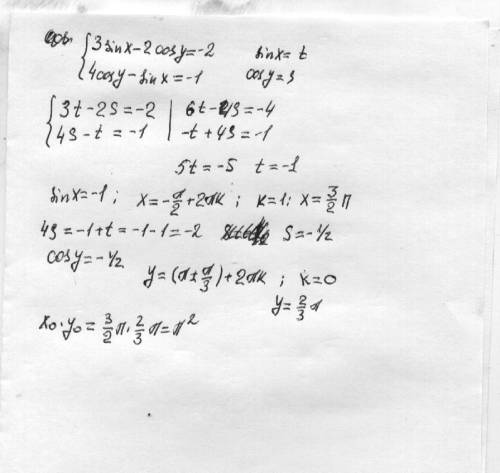 { 3sinx-2cosy=-2 sinx=t
{ 4cosy-sinx=-1 cosy=s
{ 3t-2S=-2 | 6t-4S=-4
{ 4S-t=-1 | -t+4S=-1
5t=-5 t=-1
sinx=-1; x=-π/2+2πk; k=1: x=3/2 π
4S=-1+t=-1-1=-2 S=-1/2
cosy=-1/2
y=(π±π/3)+2πk; k=0
y=2/3 π
x₀·y₀=3/2 π·2/3 π=π²